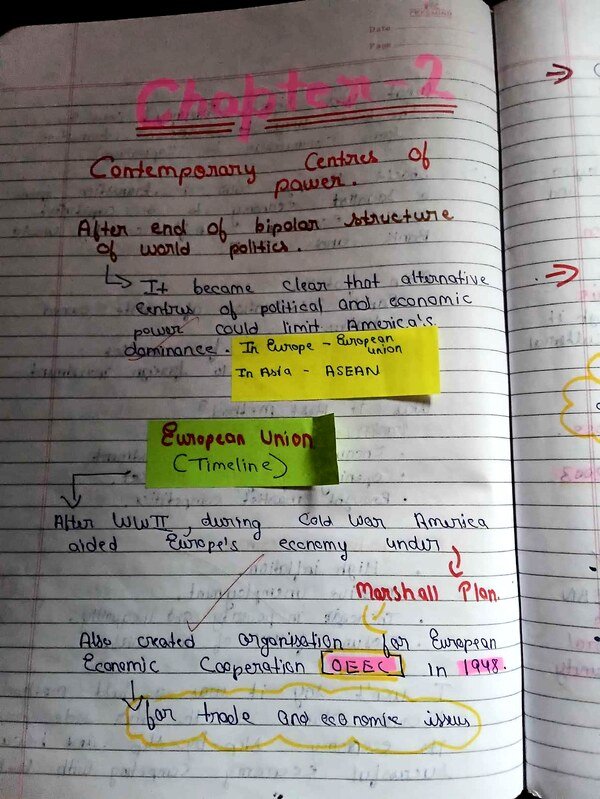 Date
Page
Chapter-2
Contemporary Centres of
power.
After end of bipolar structure
of world politics.
It became clear that alternative
centrus of political and economic
power could limit America's
dominance.
In Europe - European
union
In Asia - ASEAN
European Union
(Timeline)
After WWII, during Cold War America
aided Europe's economy under
Marshall Plan.
Also created organisation for European
Economic Cooperation OEEC in 1948.
for trade and economic issus